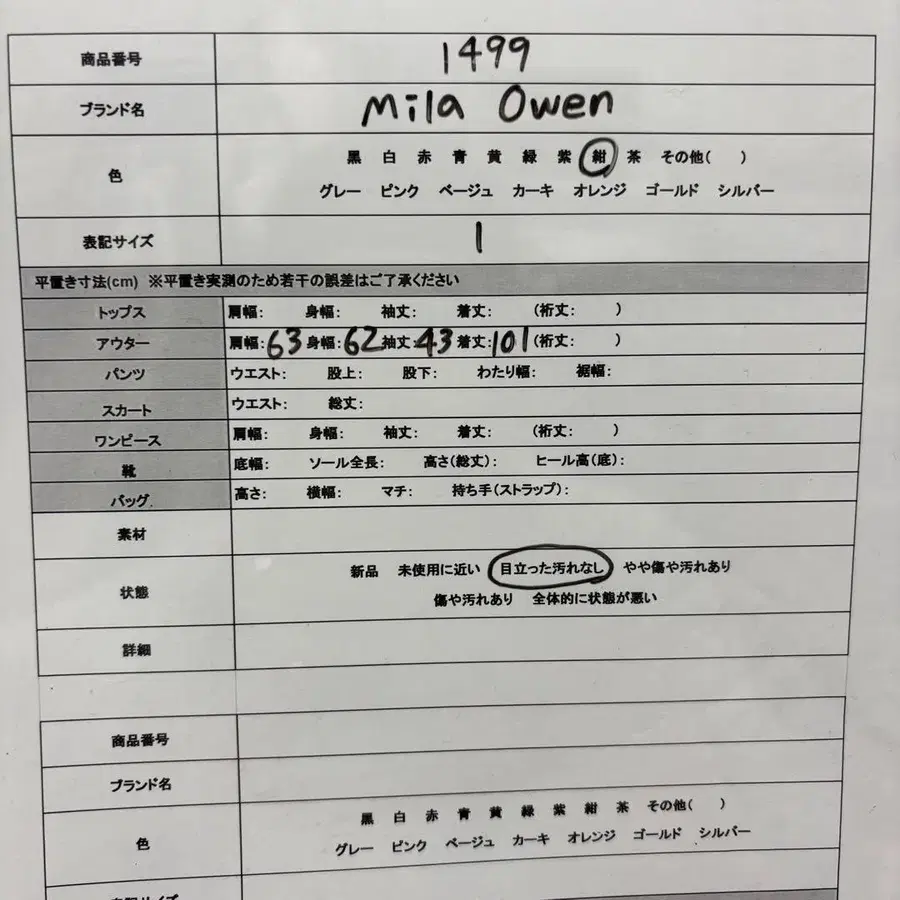 商品番号 1499
ブランド名 Mila Owen
色
黒 白 赤 青 黄 緑 紫 紺 茶 その他( )
グレー ピンク ベージュ カーキ オレンジ ゴールド シルバー
表記サイズ 1
平置き寸法(cm) ※平置き実測のため若干の誤差はご了承ください
トップス 肩幅: 身幅: 袖丈: 着丈: (裄丈: )
アウター 肩幅:63 身幅:62 袖丈:43 着丈:101 (裄丈: )
パンツ ウエスト: 股上: 股下: わたり幅: 裾幅:
スカート ウエスト: 総丈:
ワンピース 肩幅: 身幅: 袖丈: 着丈: (裄丈: )
靴 底幅: ソール全長: 高さ(総丈): ヒール高(底):
バッグ 高さ: 横幅: マチ: 持ち手(ストラップ):
素材
状態
新品 未使用に近い 目立った汚れなし やや傷や汚れあり
傷や汚れあり 全体的に状態が悪い
詳細
商品番号
ブランド名
色
黒 白 赤 青 黄 緑 紫 紺 茶 その他( )
グレー ピンク ベージュ カーキ オレンジ ゴールド シルバー
表記サイズ